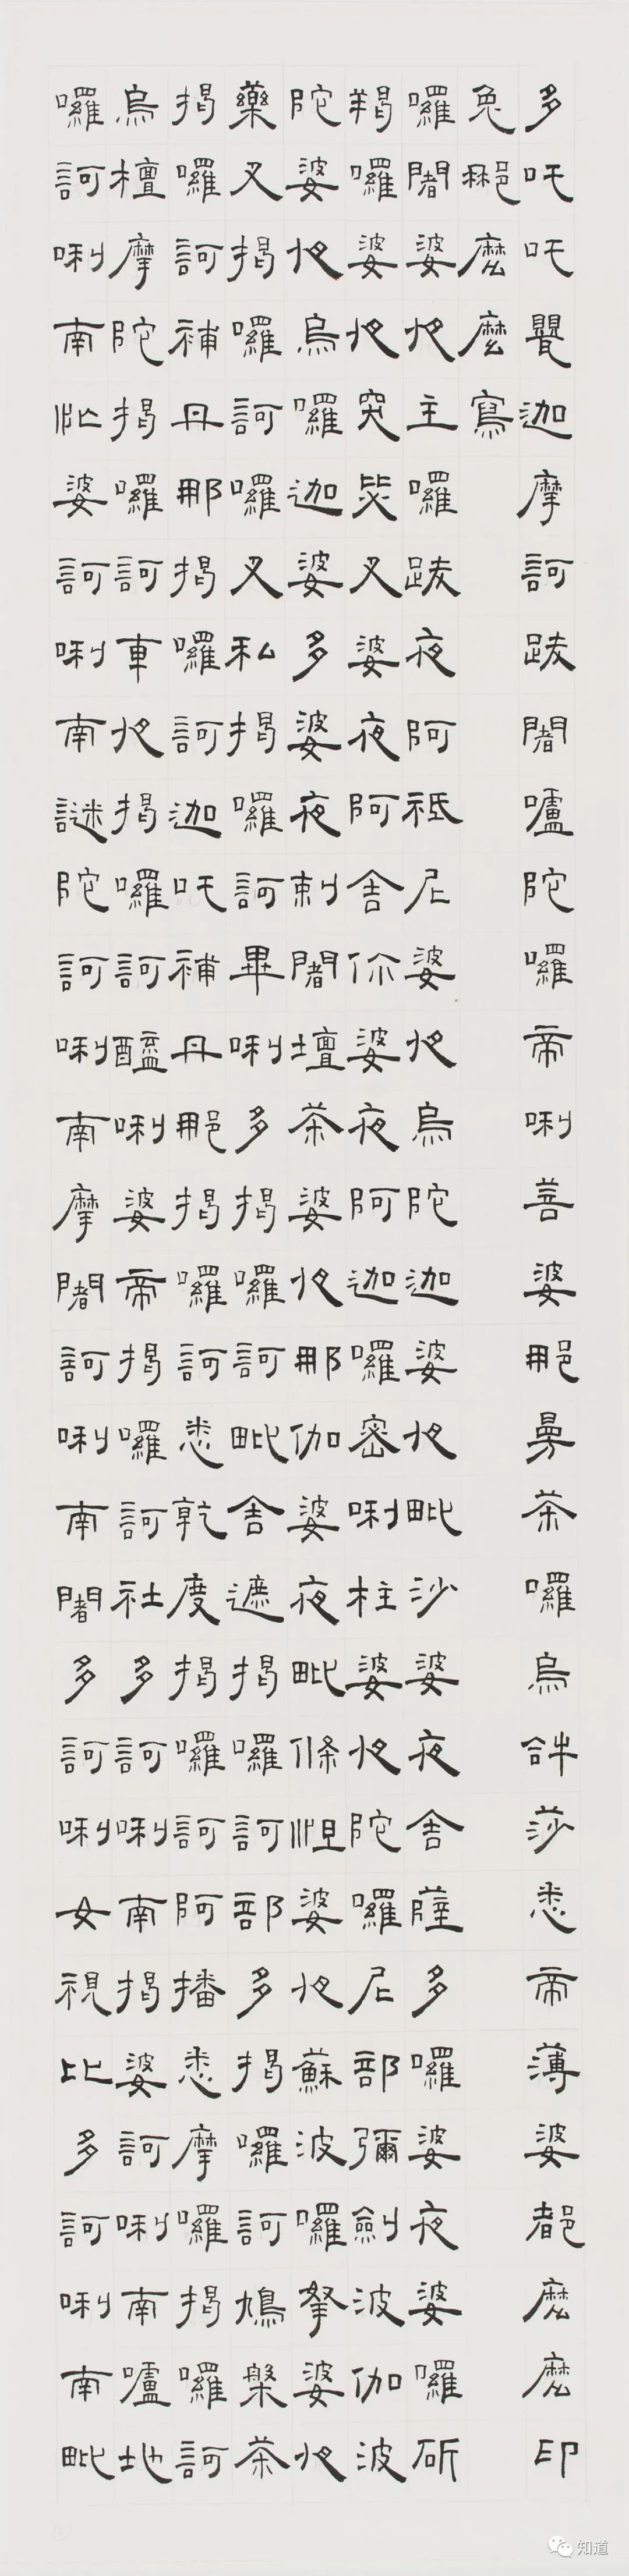 多吒吒瞿迦摩訶跋闍嚧陀囉帝唎菩婆那曼茶囉烏𤙖莎悉帝薄婆都麼麼印
兔那麼麼寫
囉闍婆夜主囉跋夜阿祇尼婆夜烏陀迦婆夜毗沙婆夜舍薩多囉婆夜婆囉斫
羯囉婆夜突瑟叉婆夜阿舍你婆夜阿迦囉密唎柱婆夜陀囉尼部彌劍波伽波
陀婆夜烏囉迦婆多婆夜剌闍壇茶婆夜那伽婆夜毗條怛婆夜蘇波囉拏婆夜
藥叉揭囉訶囉叉私揭囉訶畢唎多揭囉訶毗舍遮揭囉訶部多揭囉訶鳩槃茶
揭囉訶補丹那揭囉訶迦吒補丹那揭囉訶悉乾度揭囉訶阿播悉摩囉揭囉訶
烏檀摩陀揭囉訶車夜揭囉訶醯唎婆帝揭囉訶社多訶唎南揭婆訶唎南嚧地
囉訶唎南忙婆訶唎南謎陀訶唎南摩闍訶唎南闍多訶唎南女視比多訶唎南毗
知道